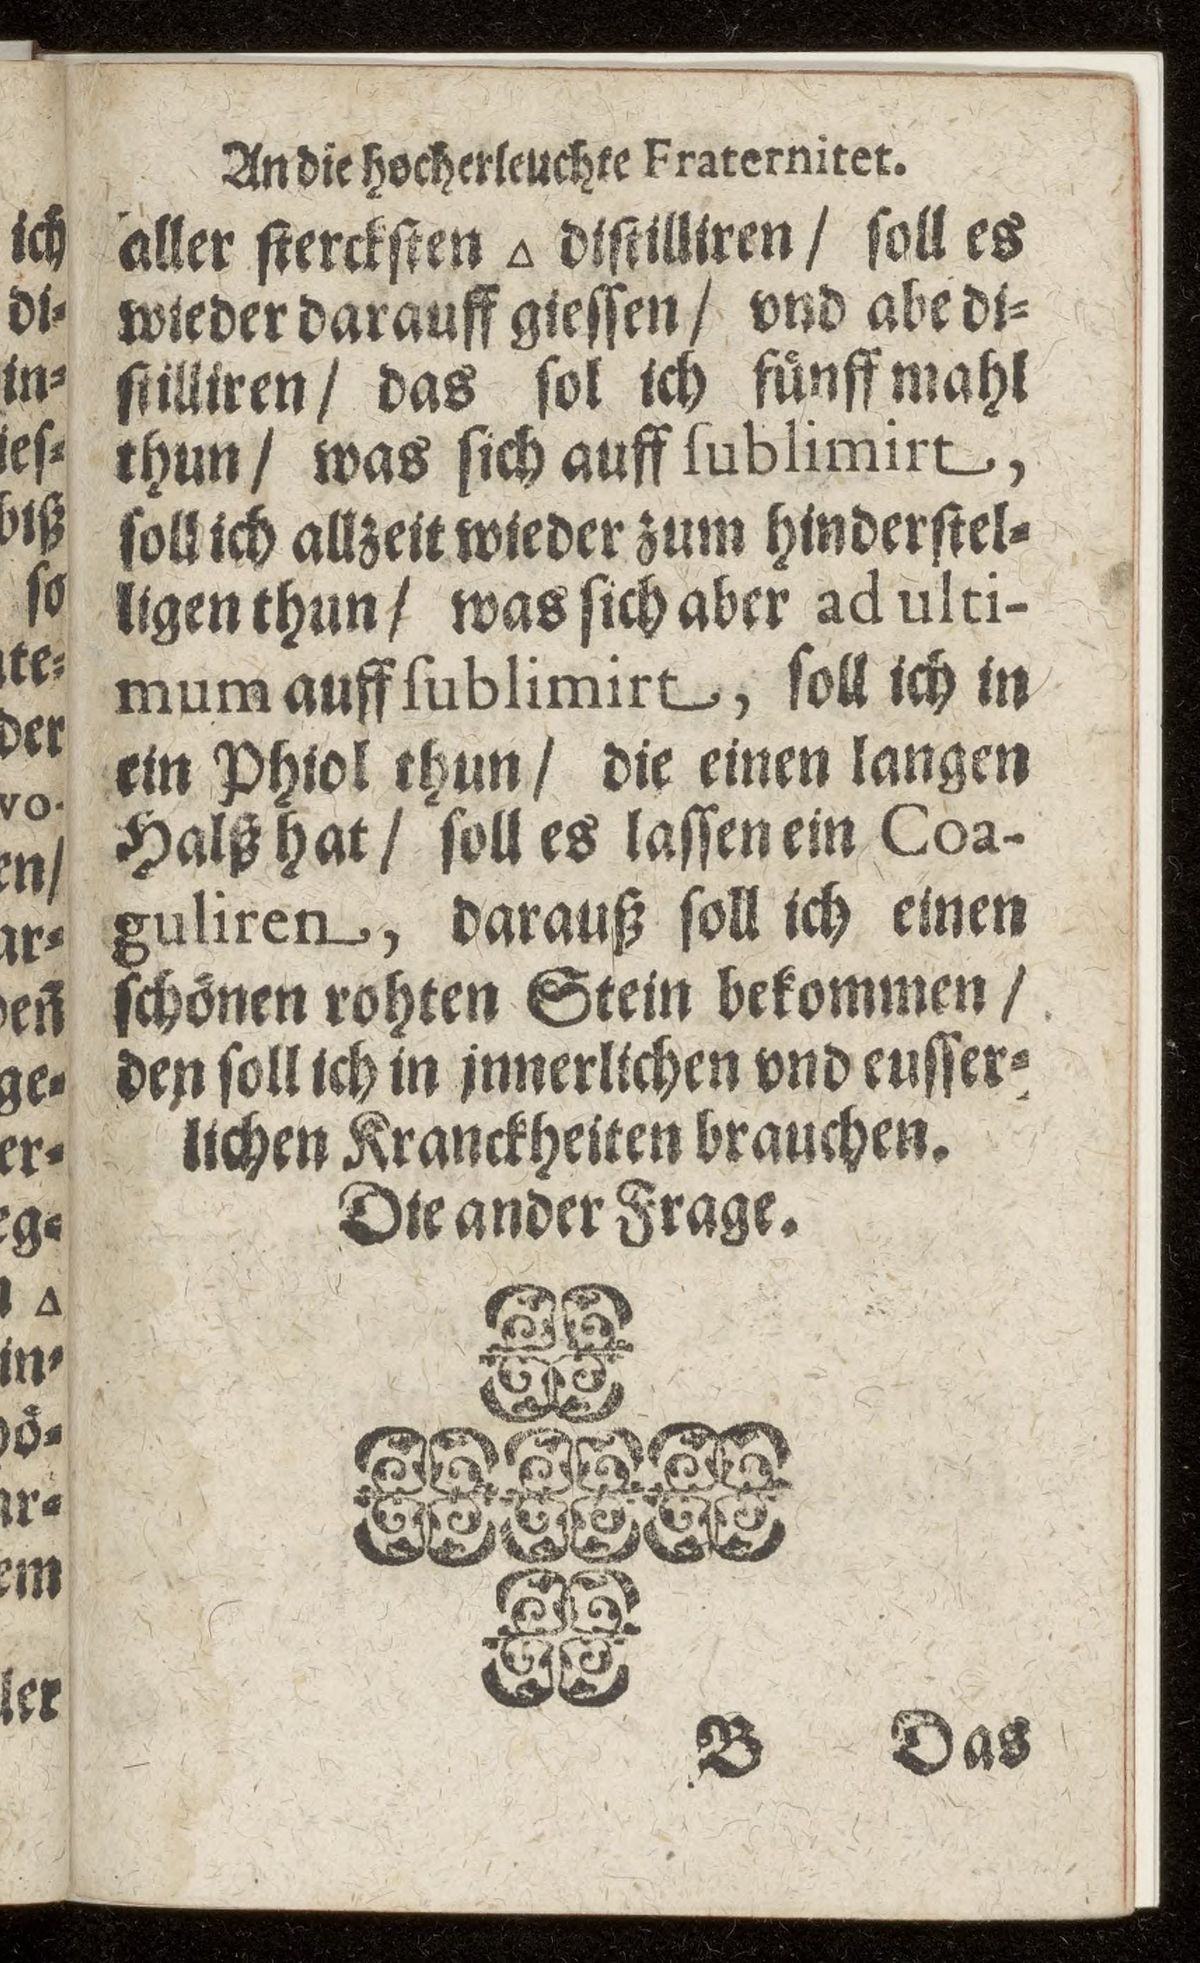 An die hocherleuchte Fraternitet.
aller sterckſten △ diſtilliren / ſoll es
wieder darauff gieſſen / vnd abe di⸗
ſtilliren / das ſol ich fuͤnff mahl
thun / was ſich auff ſublimirt,
ſoll ich allzeit wieder zum hinderſtel⸗
ligen thun / was ſich aber ad ulti-
mum auff ſublimirt, ſoll ich in
ein Phiol thun / die einen langen
Halß hat / ſoll es laſſen ein Coa-
guliren, darauß ſoll ich einen
ſchoͤnen rohten Stein bekommen /
den ſoll ich in jnnerlichen vnd euſſer⸗
lichen Kranckheiten brauchen.
Die ander Frage.
B Das